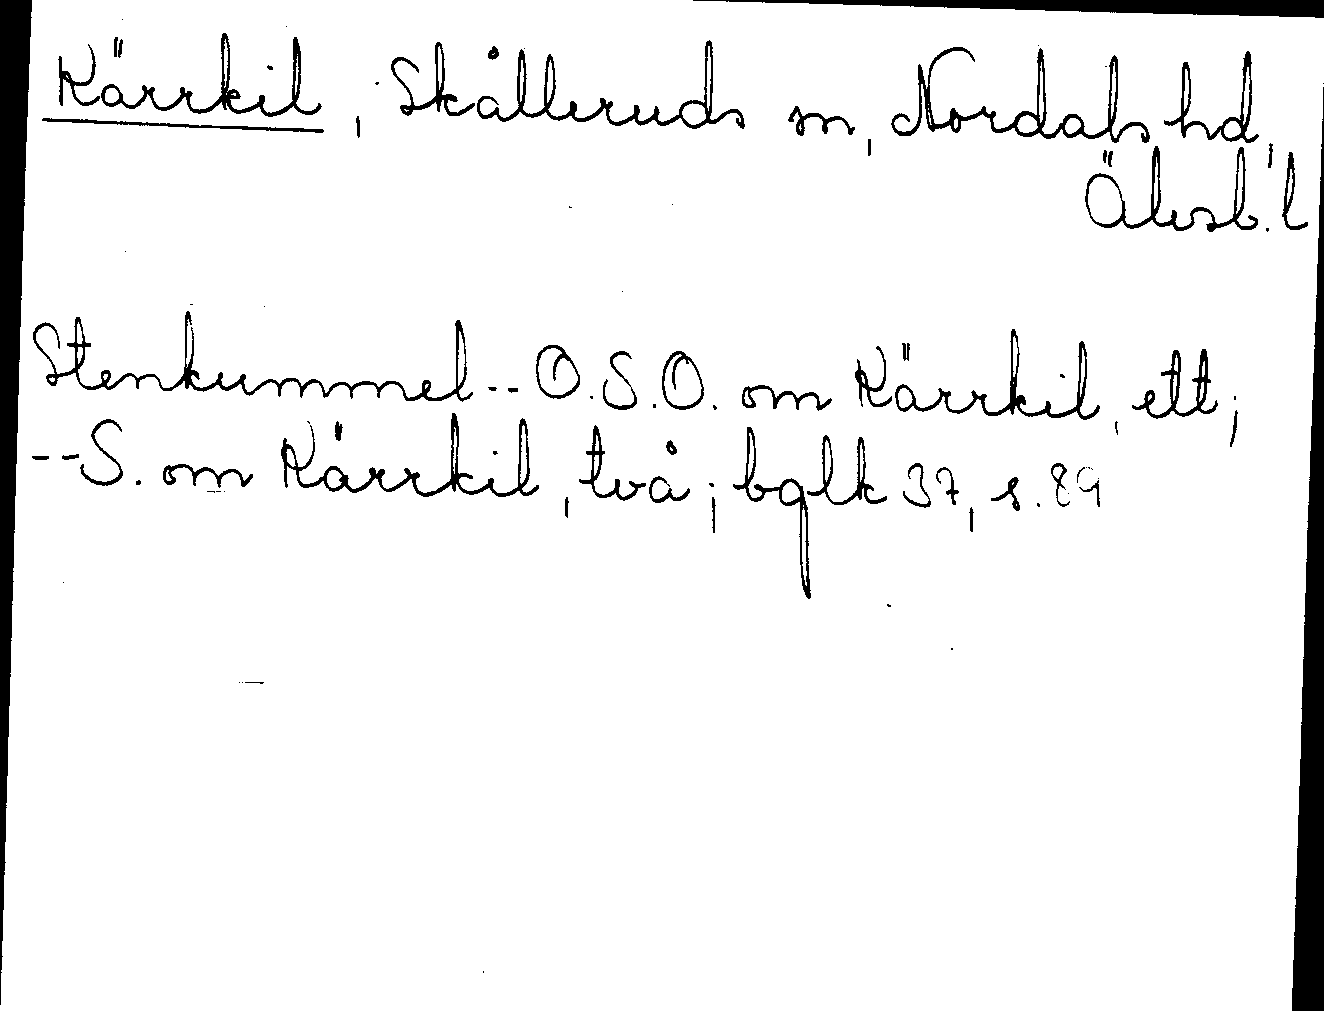 Kärrkil, Skålleruds sn, Nordals hd,
Älvsb. l
Stenkummel -- O.S.O. om Kärrkil, ett;
-- S. om Kärrkil, två; bglk 37, s. 89